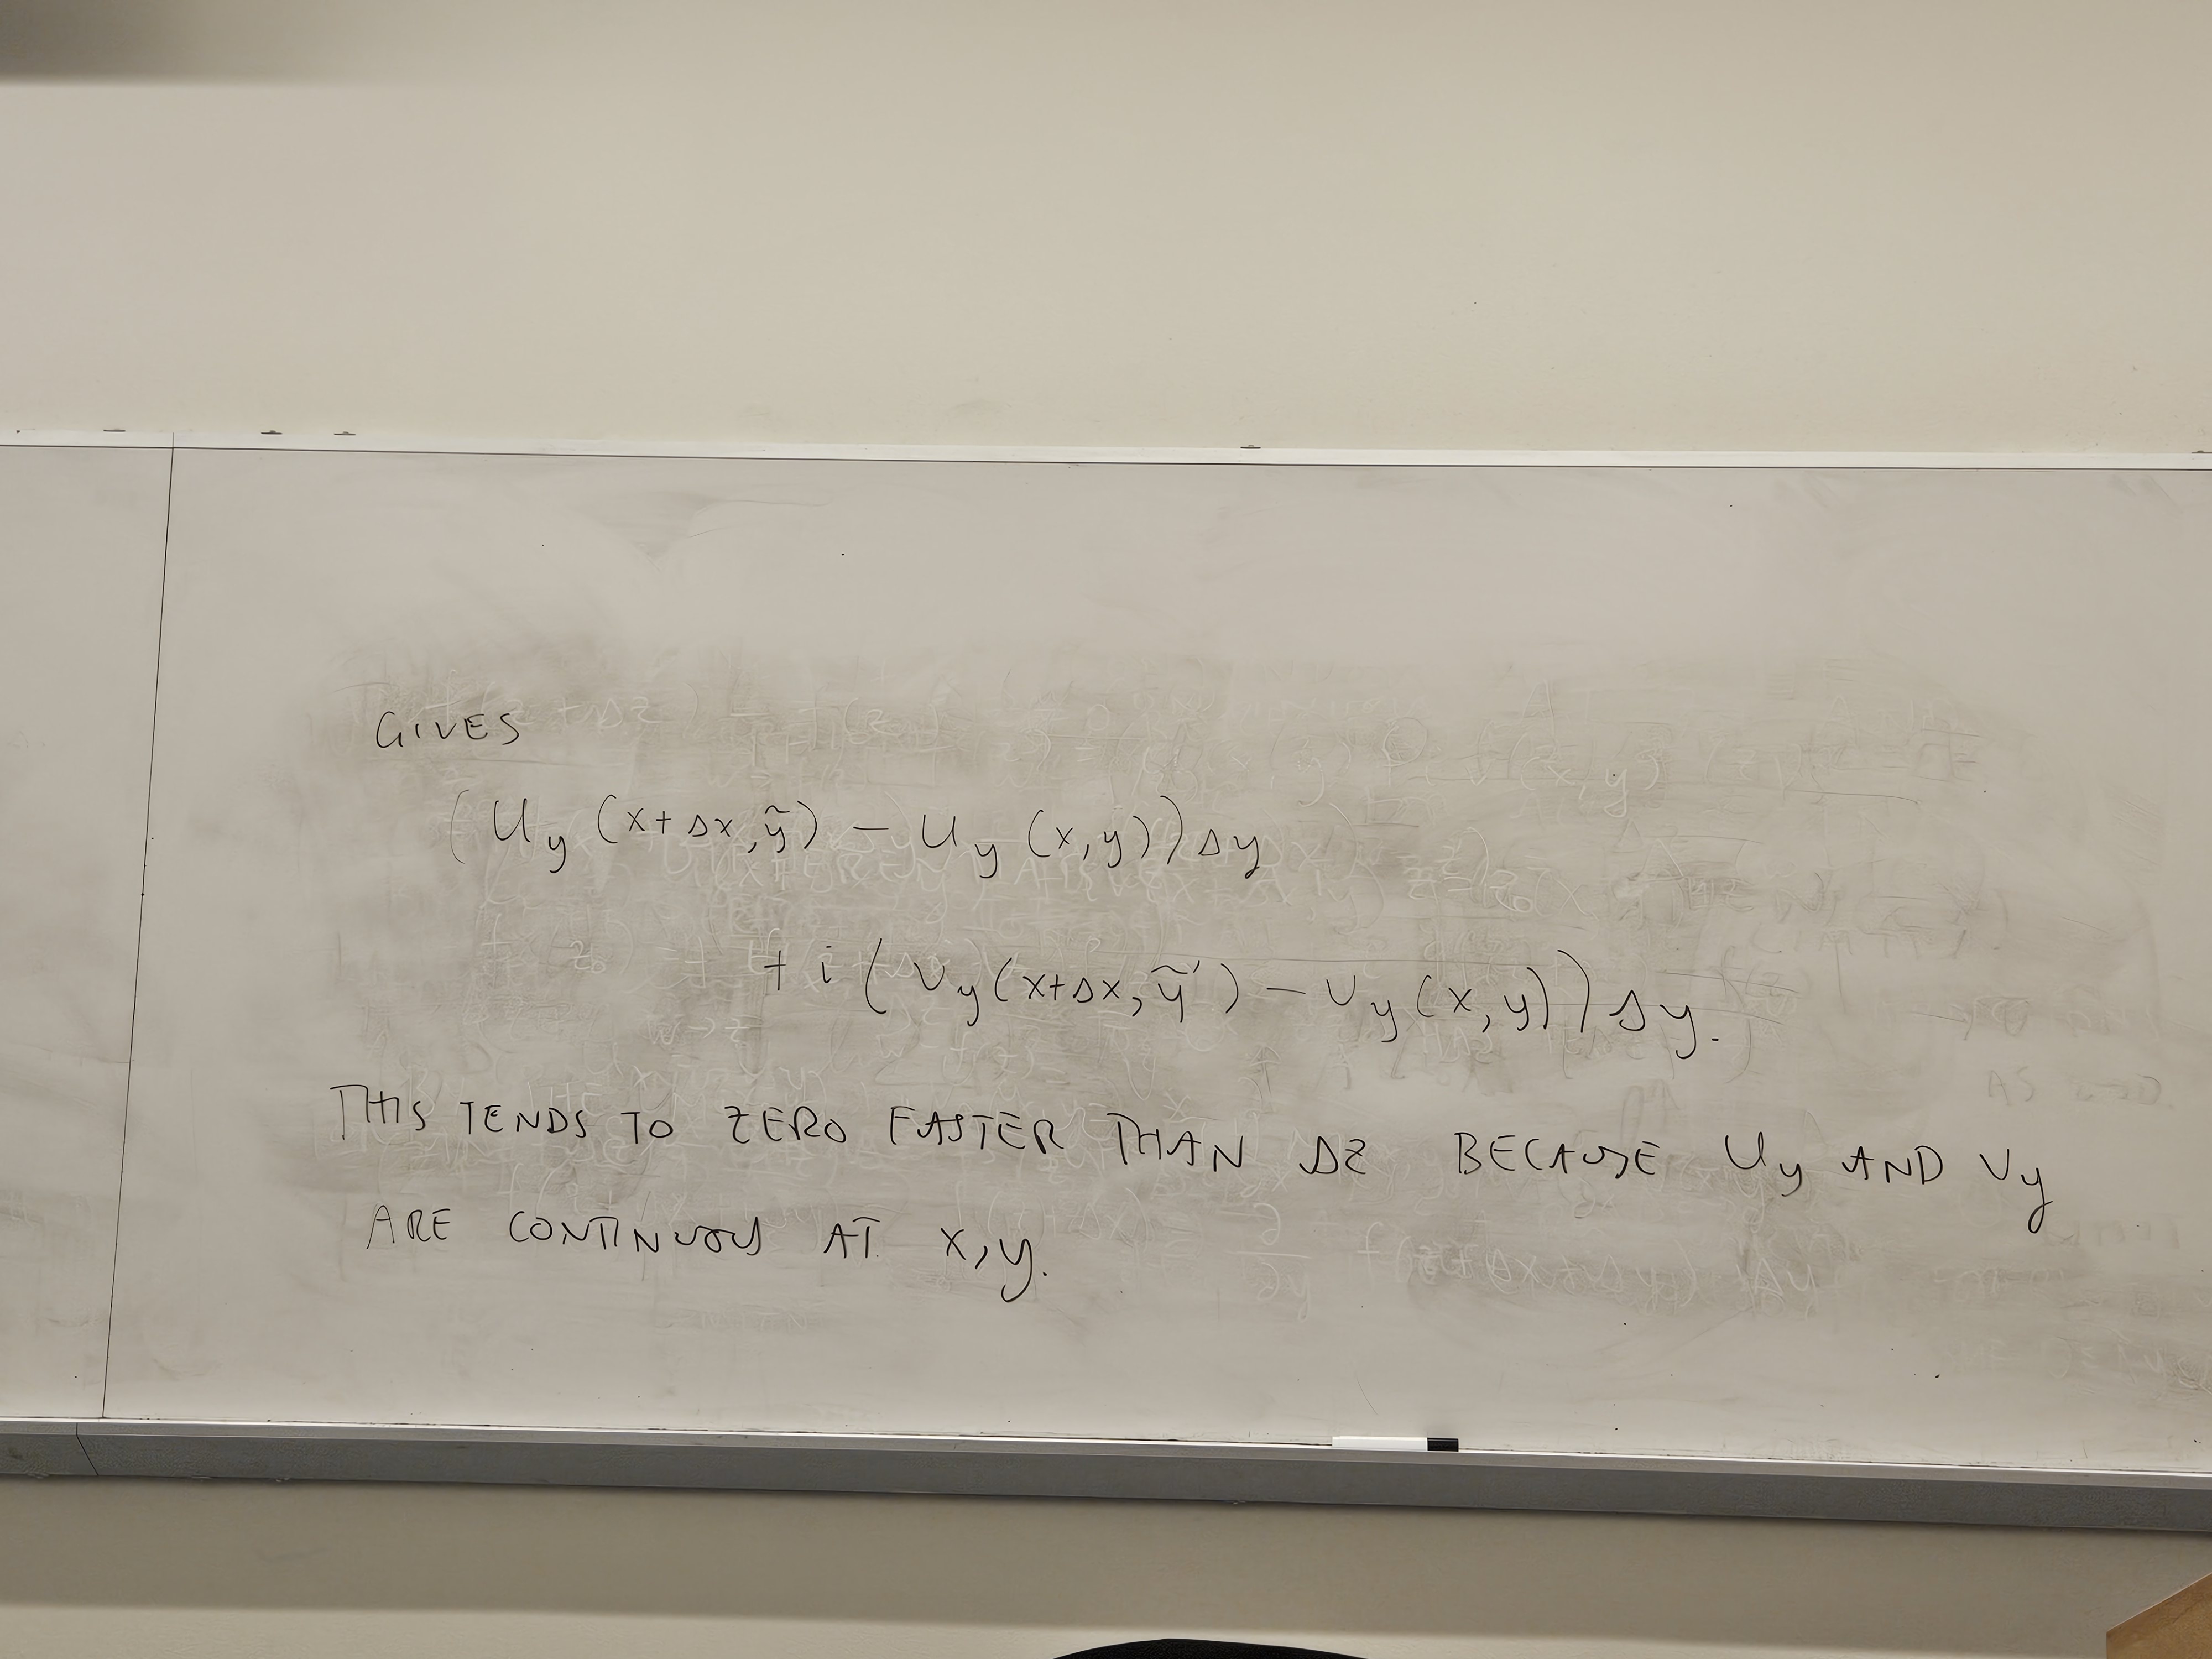 GIVES
(U_y (x+Δx, ỹ) − U_y (x,y)) Δy
+ i (V_y (x+Δx, ỹ') − V_y (x,y)) Δy.
THIS TENDS TO ZERO FASTER THAN ΔZ BECAUSE U_y AND V_y
ARE CONTINUOUS AT X,y.